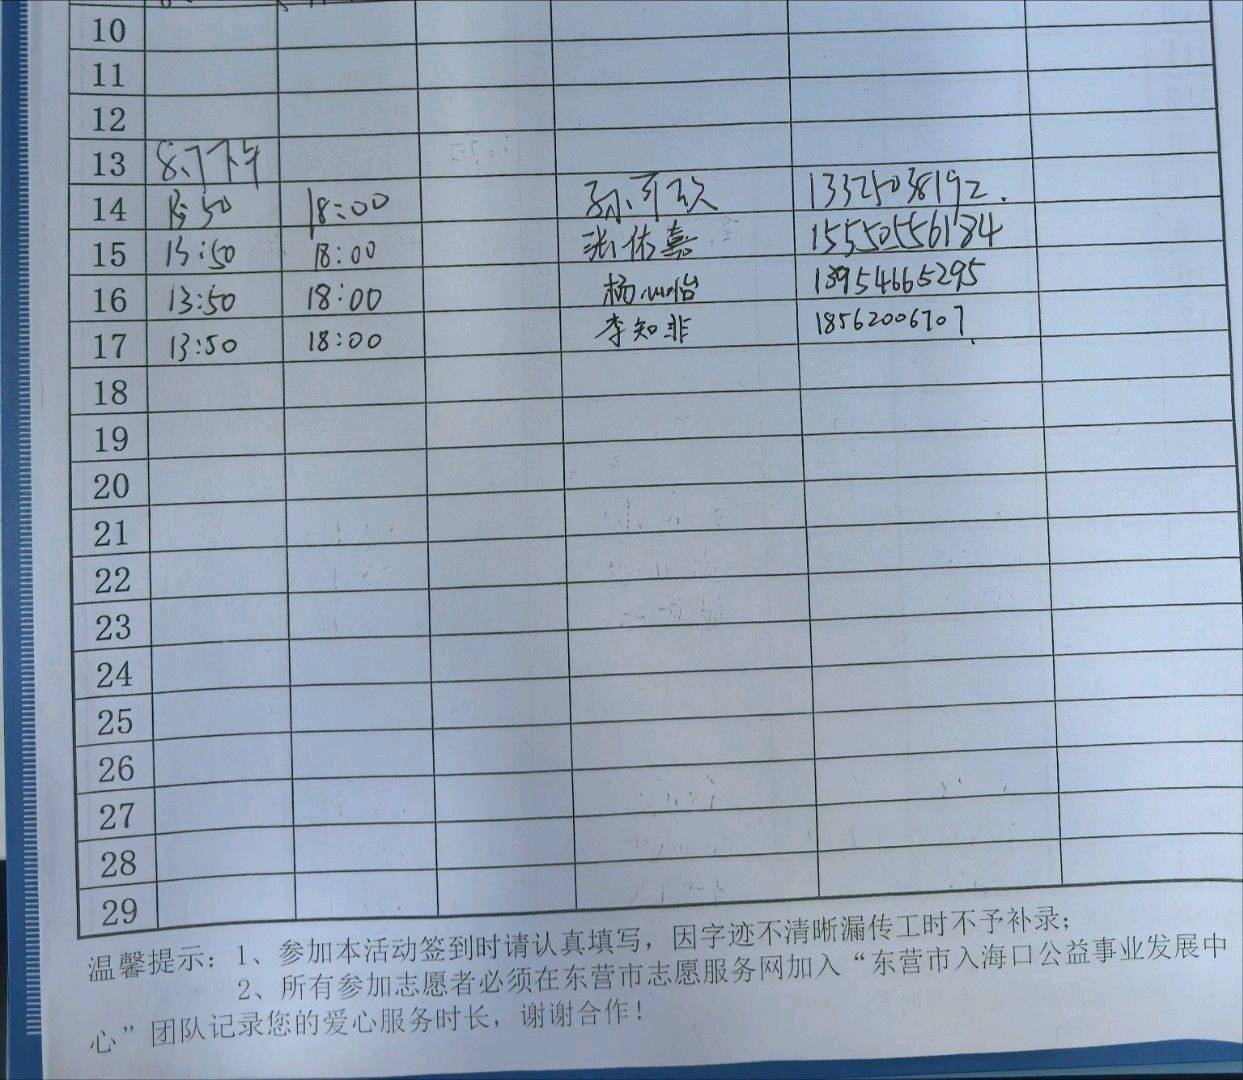 10
11
12
13 8.7下午
14 13:50 18:00 孙可欣 13325038192.
15 13:50 18:00 张佑嘉 15550556184
16 13:50 18:00 杨心怡 13954665295
17 13:50 18:00 李知非 18562006707
18
19
20
21
22
23
24
25
26
27
28
29
温馨提示：1、参加本活动签到时请认真填写，因字迹不清晰漏传工时不予补录；
2、所有参加志愿者必须在东营市志愿服务网加入“东营市入海口公益事业发展中
心”团队记录您的爱心服务时长，谢谢合作！